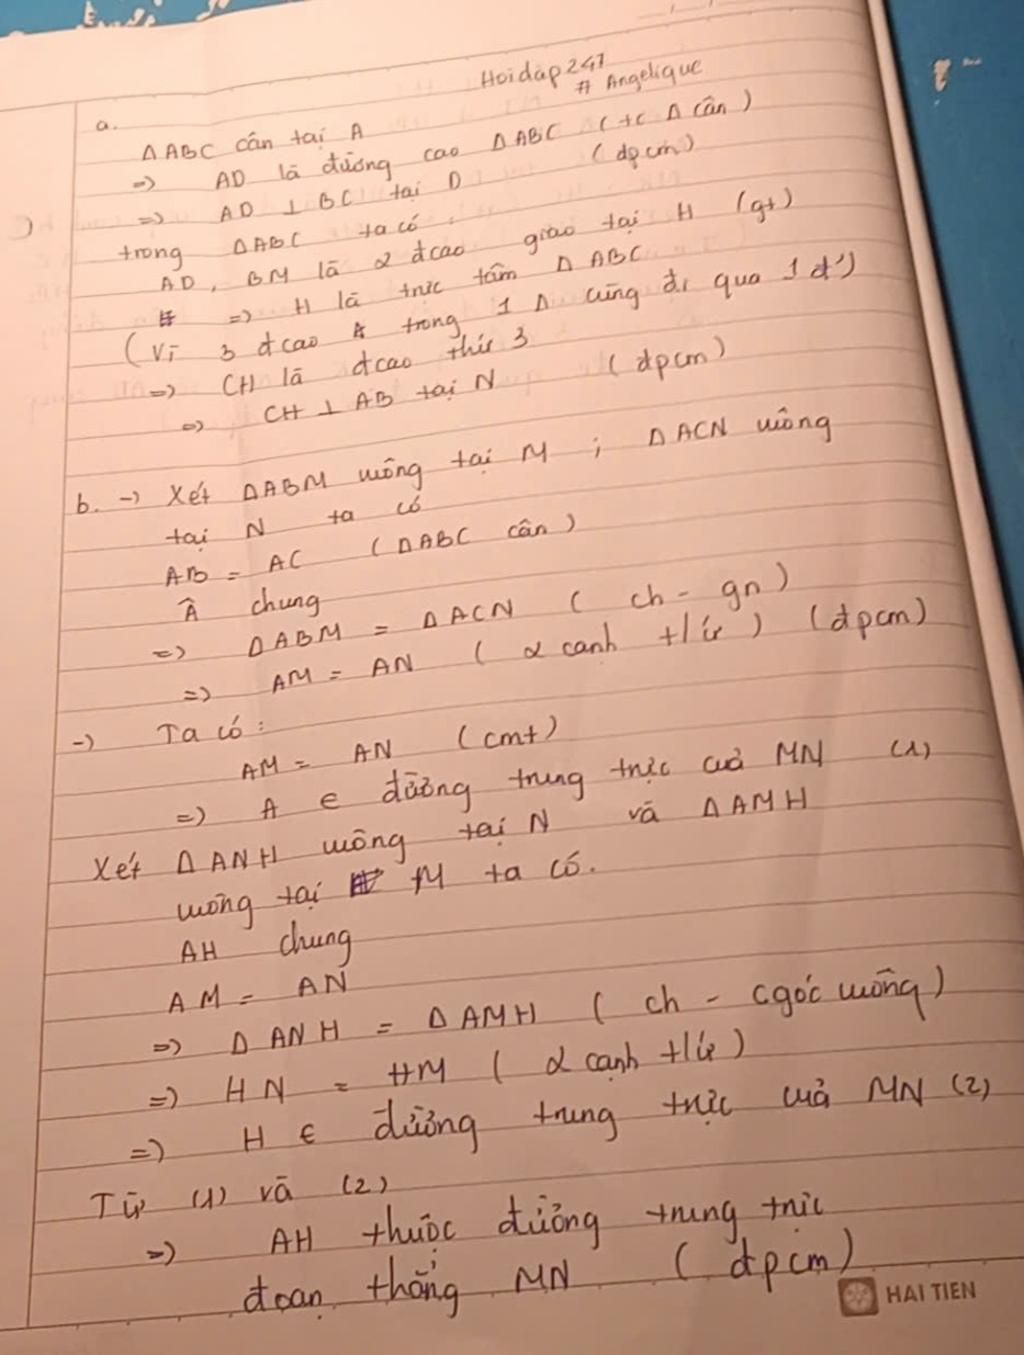 Hoidap247
# Angelique
a.
Δ ABC cân tại A
=> AD là đường cao Δ ABC (tc Δ cân)
=> AD ⊥ BC tại D (đpcm)
trong ΔABC ta có:
AD, BM là 2 đcao giao tại H (gt)
=> H là trực tâm Δ ABC
(Vì 3 đcao trong 1 Δ cùng đi qua 1 đ')
=> CH là đcao thứ 3
=> CH ⊥ AB tại N (đpcm)
b. -> Xét ΔABM vuông tại M ; ΔACN vuông
tại N ta có
AB = AC (ΔABC cân)
Â chung
=> ΔABM = ΔACN (ch - gn)
=> AM = AN (2 cạnh t/ứ) (đpcm)
-> Ta có:
AM = AN (cmt)
=> A ∈ đường trung trực của MN (1)
Xét ΔANH vuông tại N và ΔAMH
vuông tại M ta có.
AH chung
AM = AN
=> ΔANH = ΔAMH (ch - cgóc vuông)
=> HN = HM (2 cạnh t/ứ)
=> H ∈ đường trung trực của MN (2)
Từ (1) và (2)
=> AH thuộc đường trung trực
đoạn thẳng MN (đpcm)
HAI TIEN